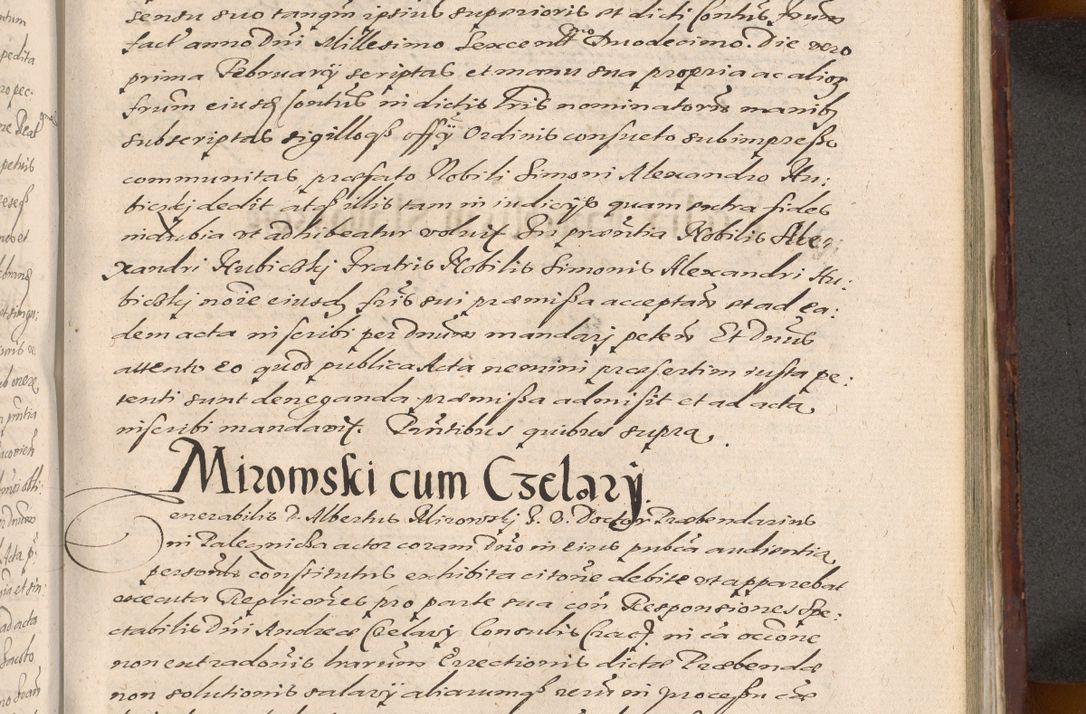 sensu suo tanqm ipsius superioris et dicti Contus frum
fact anno Dni Millesimo Sexcentmo Duodecimo. Die vero
prima Februarij scriptas et manu sua propria ac alioz
frum eiusd Contus in dictis tris nominatoru manibz
subscriptas sigilloqz offij Ordinis consueto subimpresso
communitas præfato Nobili Simoni Alexandro Hu:
bicskj dedit atqz illis tam in iudicijs quam extra fides
indubia vt adhibeatur voluit In præntia Nobilis Ale:
xandri Hubicskj Fratris Nobilis Simonis Alexandri Hu:
bicskj noie eiusd fris sui præmissa acceptan et ad ea:
dem acta inscribi per Dnum mandarj peten Et Dnus
attento eo quod publica Acta nemini præsertim iusta pe:
tenti sunt deneganda præmissa admisit et ad acta
inscribi mandavit. Pntibus quibus supra.
Mirowski cum Czelary.
Venerabilis D. Albertus Mirowskj I. V. Doctor Præbendarius
in Palecznicza actor coram Dno in eius pubca audientia
personr constitutus exhibita citone debite vt apparebat
executa Replicones pro parte sua con Responsiones Spe:
ctabilis Dni Andreæ Czelary Consulis Crac in ca occone
non extradonis harum Errectionis dictæ Præbendæ
non solutionis salarij aliarumqz reru in processu cæ